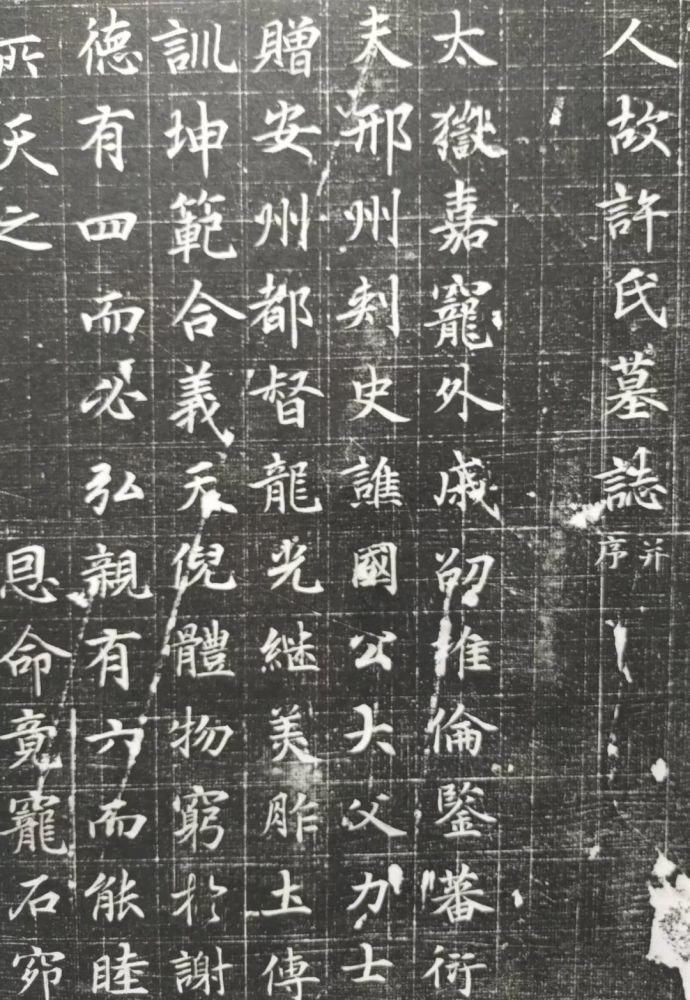 人故許氏墓誌并序
太嶽嘉寵外戚劭推倫鑒蕃衍
夫邢州刺史譙國公大父力士
贈安州都督龍光継美胙土傳
訓坤範合義天俔體物窮於謝
德有四而必弘親有六而能睦
所天之 恩命竟寵石窌